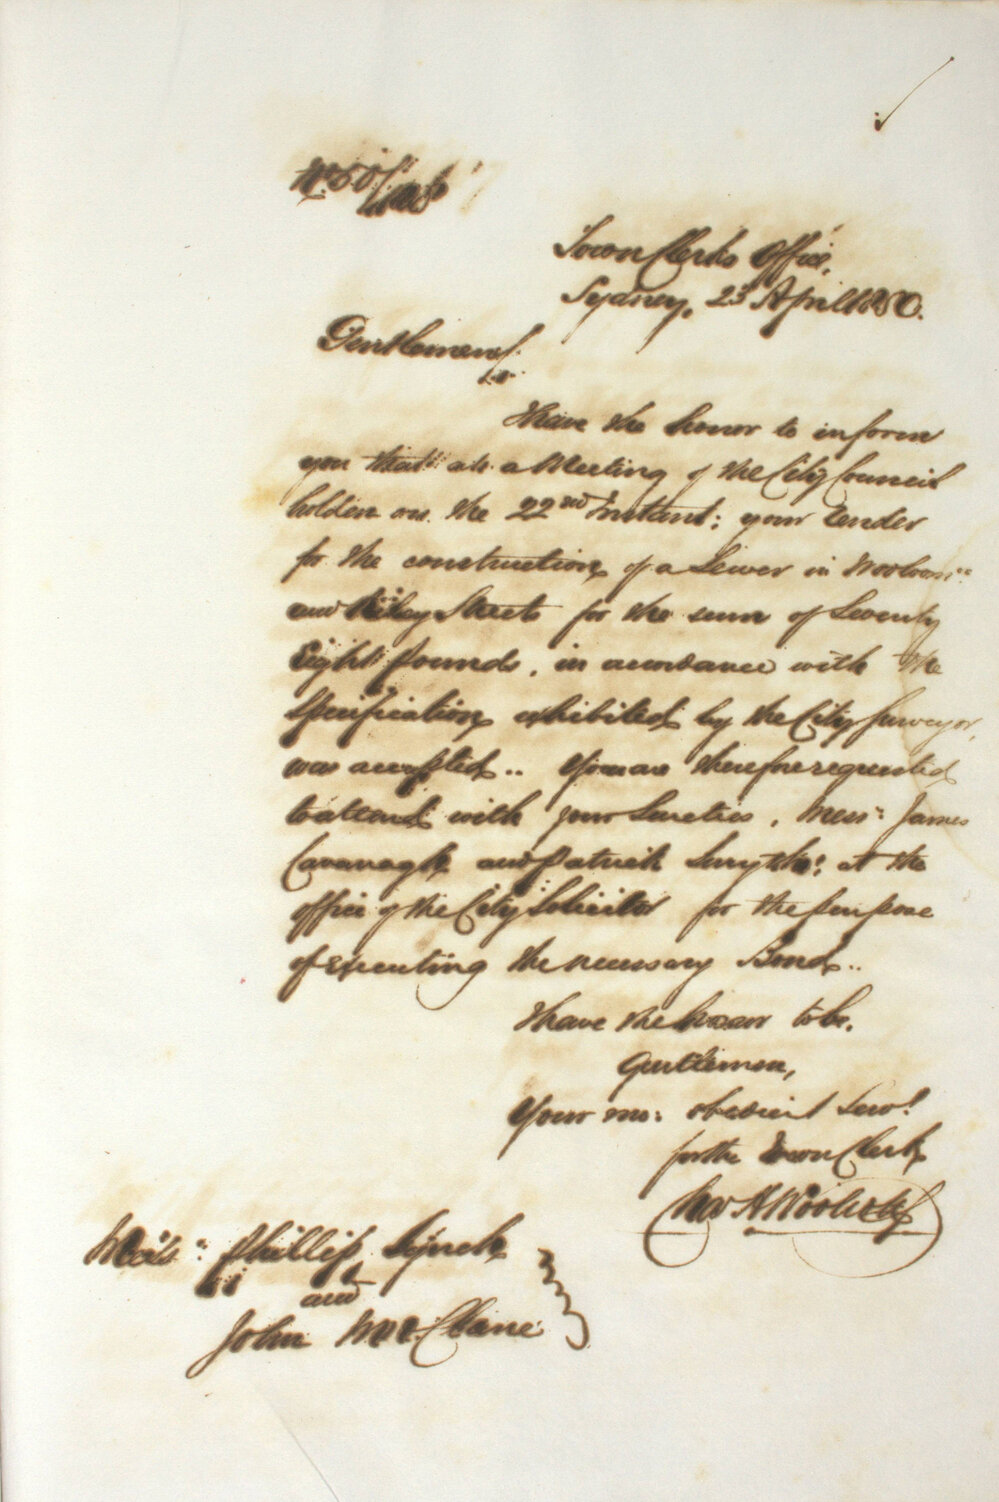 Town Clerks Office,
Sydney, 23 April 1850.
Gentlemen,
I have the honor to inform
you that at a Meeting of the City Council
holden on the 22nd Instant; your tender
for the construction of a Sewer in
and Riley Streets for the sum of Seventy
Eight pounds, in accordance with the
Specification exhibited by the City Surveyor,
was accepted.. You are therefore requested
to attend with your Sureties, Messrs: James
Cavanagh and Patrick Smythe; at the
office of the City Solicitor for the purpose
of executing the necessary Bond..
I have the honor to be,
Gentlemen,
Your mo: obedient Servt
for the Town Clerk
Messrs: Phillip Lynch
and
John McClane